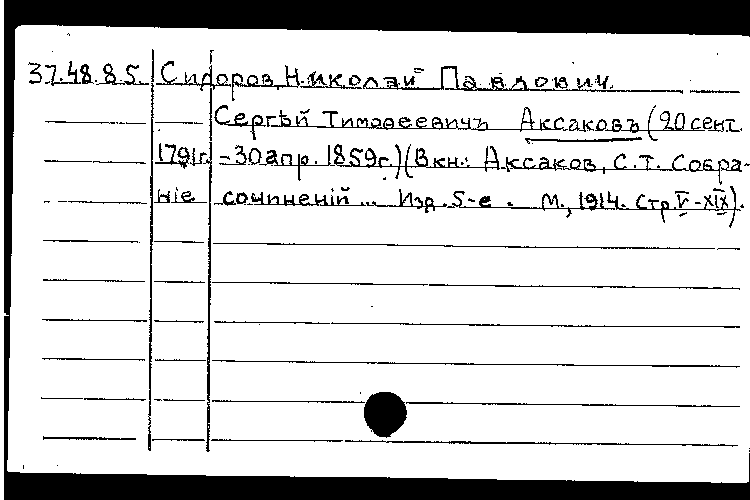 37.48.8.5. Сидоров, Николай Павлович.
Сергѣй Тимоѳеевичъ Аксаковъ (20 сент.
1791г. - 30 апр. 1859г.) (В кн.: Аксаков, С.Т. Собра-
ніе сочиненій ... Изд. 5-е. М., 1914. Стр. V-XIX).